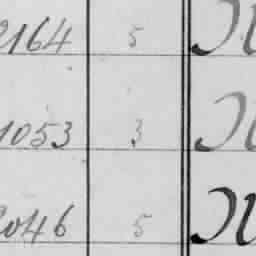 2164 5
1053 3
2046 5